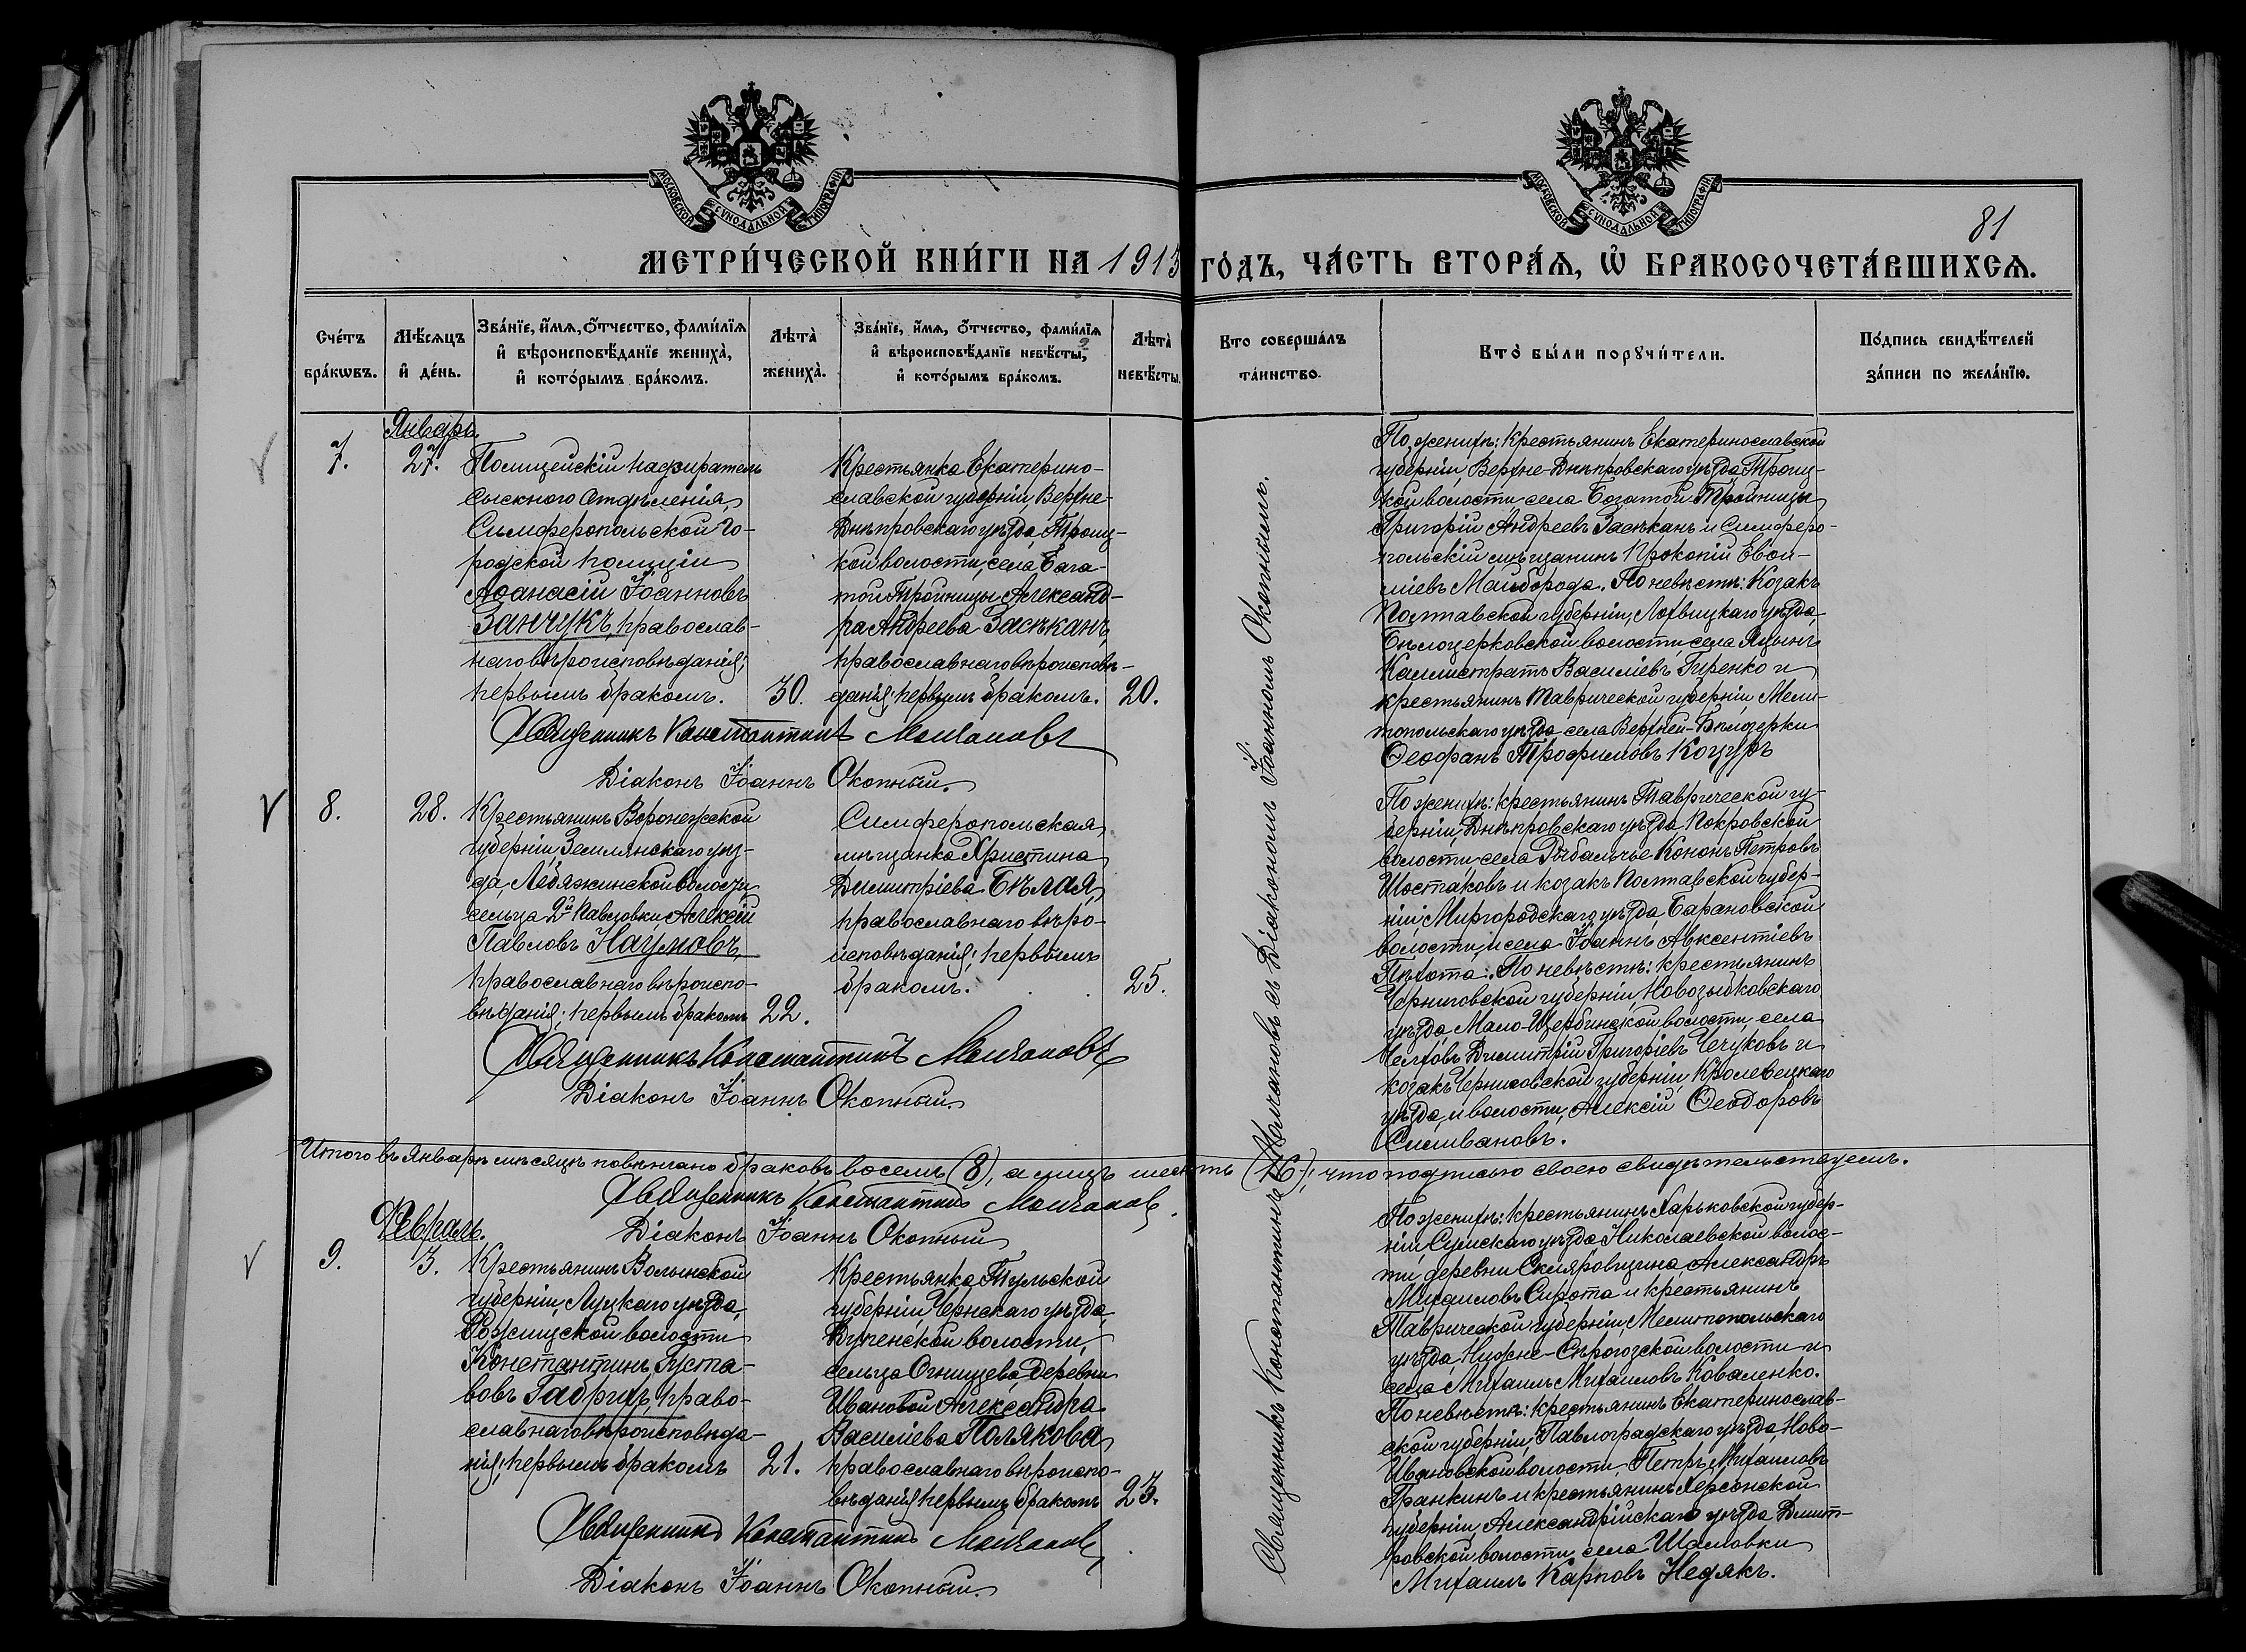 МОСКОВСКОЙ СѴНОДАЛЬНОЙ ТИПОГРАФІИ
МОСКОВСКОЙ СѴНОДАЛЬНОЙ ТИПОГРАФІИ
81
МЕТРИ́ЧЕСКОЙ КНИ́ГИ НА 1913 ГО́ДЪ, ЧА́СТЬ ВТОРА́Ѧ, Ѡ҆ БРАКОСОЧЕТА́ВШИХСѦ.
Сче́тъ бра́кѡвъ.
Мѣ́сѧцъ и҆ де́нь.
Зва́нїе, и҆́мѧ, ѻ҆́тчество, фами́лїѧ
и҆ вѣроисповѣ́данїе жениха̀,
и҆ кото́рымъ бра́комъ.
Лѣта̀ жениха̀.
Зва́нїе, и҆́мѧ, ѻ҆́тчество, фами́лїѧ
и҆ вѣроисповѣ́данїе невѣ́сты,
и҆ кото́рымъ бра́комъ.
Лѣта̀ невѣ́сты.
Кто соверша́лъ та́инство.
Кто̀ бы́ли порꙋчи́тели.
По́дпись свидѣ́телей
за́писи по жела́нїю.
Январь.
7.
27.
Полицейскій надзиратель
сыскного отдѣленія
Симферопольской го-
родской полиціи
Аѳанасій Іоанновъ
Занчукъ, православ-
наго вѣроисповѣданія;
первымъ бракомъ.
30.
Крестьянка Екатерино-
славской губерніи, Верхне-
Днѣпровскаго уѣзда, Троиц-
кой волости, села Бога-
той Тройницы Александ-
ра Андреева Засѣканъ,
православнаго вѣроисповѣ-
данія; первымъ бракомъ.
20.
Священникъ Константинъ Молчановъ
Діаконъ Іоаннъ Окопный.
По женихѣ: крестьянинъ Екатеринославской
губерніи, Верхне-Днѣпровскаго уѣзда, Троиц-
кой волости села Богатой Тройницы
Григорій Андреевъ Засѣканъ и Симферо-
польскій мѣщанинъ Прокопій
Майборода. По невѣстѣ: Козакъ
Полтавской губерніи, Лохвицкаго уѣзда,
Бѣлоцерковской волости, села Яцынъ
Каллистратъ Василіевъ Гиренко и
крестьянинъ Таврической губерніи, Мели-
топольскаго уѣзда села Верхней-Бѣлозерки
Ѳеофанъ Трофимовъ Коцуръ
8.
28.
Крестьянинъ Воронежской
губерніи, Землянскаго уѣз-
да, Лебяжинской волости,
сельца 2й Павловки, Алексій
Павловъ Наумовъ,
православнаго вѣроиспо-
вѣданія; первымъ бракомъ
22.
Симферопольская
мѣщанка Христина
Димитріева Бѣлая,
православнаго вѣро-
исповѣданія; первымъ
бракомъ.
25.
Священникъ Константинъ Молчановъ
Діаконъ Іоаннъ Окопный.
По женихѣ: крестьянинъ Таврической гу-
берніи, Днѣпровскаго уѣзда, Покровской
волости, села Рыбальчье Кононъ Петровъ
Шостаковъ и козакъ Полтавской губер-
ніи, Миргородскаго уѣзда, Барановской
волости, и села Іоаннъ Авксентіевъ
Пѣхота. По невѣстѣ: крестьянинъ
Черниговской губерніи, Новозыбковскаго
уѣзда, Мало-Щербинской волости, села
Челховъ Димитрій Григоріевъ Чечуковъ и
козакъ Черниговской губерніи, Кролевецкаго
уѣзда, и волости, Алексій Ѳеодоровъ
Силивановъ.
Священникъ Константинъ Молчановъ съ Діакономъ Іоанномъ Окопнымъ.
Итого въ Январѣ мѣсяцѣ повѣнчано браковъ восемь (8), а лицъ (16); что подписью своею свидѣтельствуемъ.
Священникъ Константинъ Молчановъ.
Діаконъ Іоаннъ Окопный
Февраль.
9.
3.
Крестьянинъ Волынской
губерніи, Луцкаго уѣзда,
Рожищской волости
Константинъ Густа-
вовъ Габрихъ, право-
славнаго вѣроисповѣда-
нія; первымъ бракомъ
21.
Крестьянка Тульской
губерніи, Чернскаго уѣзда,
волости,
сельца Огнищева, деревни
Ивановой Александра
Василіева Полякова
православнаго вѣроиспо-
вѣданія первымъ бракомъ
23.
Священникъ Константинъ Молчановъ
Діаконъ Іоаннъ Окопный.
По женихѣ: крестьянинъ Харьковской губер-
ніи, Сумскаго уѣзда Николаевской волос-
ти деревни Скляровщина, Александръ
Михаиловъ Сирота и крестьянинъ
Таврической губерніи, Мелитопольскаго
уѣзда, Нижне-Сѣрогозской волости и
села Михаилъ Михаиловъ Коваленко.
По невѣстѣ: крестьянинъ Екатеринослав-
ской губерніи, Павлоградскаго уѣзда, Ново-
Ивановской волости, Петръ Михаиловъ
Гранкинъ и крестьянинъ Херсонской
губерніи, Александрійскаго уѣзда Дмит-
ровской волости, села Шамовки
Михаилъ Карповъ Недякъ.